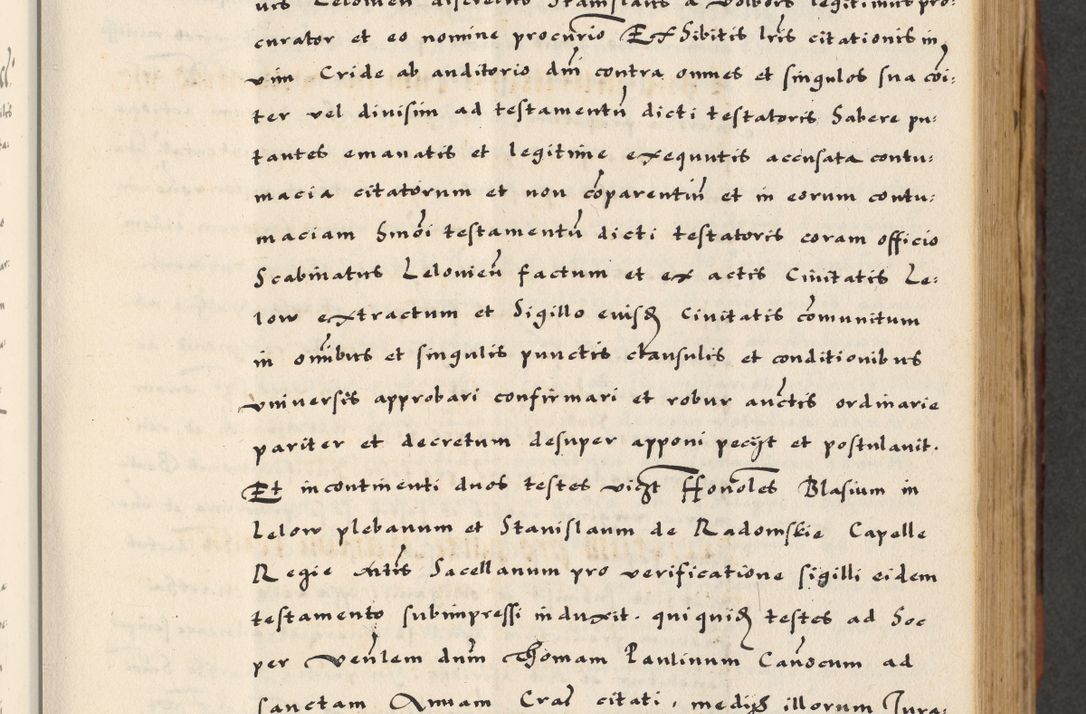 curator et eo nomine procurio Exhibitis lris citationis in
vim Cride ab auditorio dni contra omnes et singulos sua coi-
ter vel divisim ad testamentu dicti testatoris habere pu-
tantes emanatis et legitime exequutis accusata contu-
macia citatorum et non coparentiu et in eorum contu-
maciam hmoi testamentu dicti testatoris coram officio
Scabinatus Lelovien factum et ex actis Civitatis Le-
low extractum et Sigillo eiusd Civitatis comunitum
in oibus et singulis punctis clausulis et conditionibus
vniversis approbari confirmari et robur auctis ordinarie
pariter et decretum desuper apponi pecyt et postulavit.
Et incontinenti duos testes vizt Honoles Blasium in
Lelow plebanum et Stanislaum de Radomskie Capelle
Regie Sacellanum pro verificatione sigilli eidem
testamento subimpressi induxit. qui quid testes ad hoc
per Venlem dnm Thomam Paulinum Canocum ad
sanctam Annam Crac citati, medijs illorum Iura-